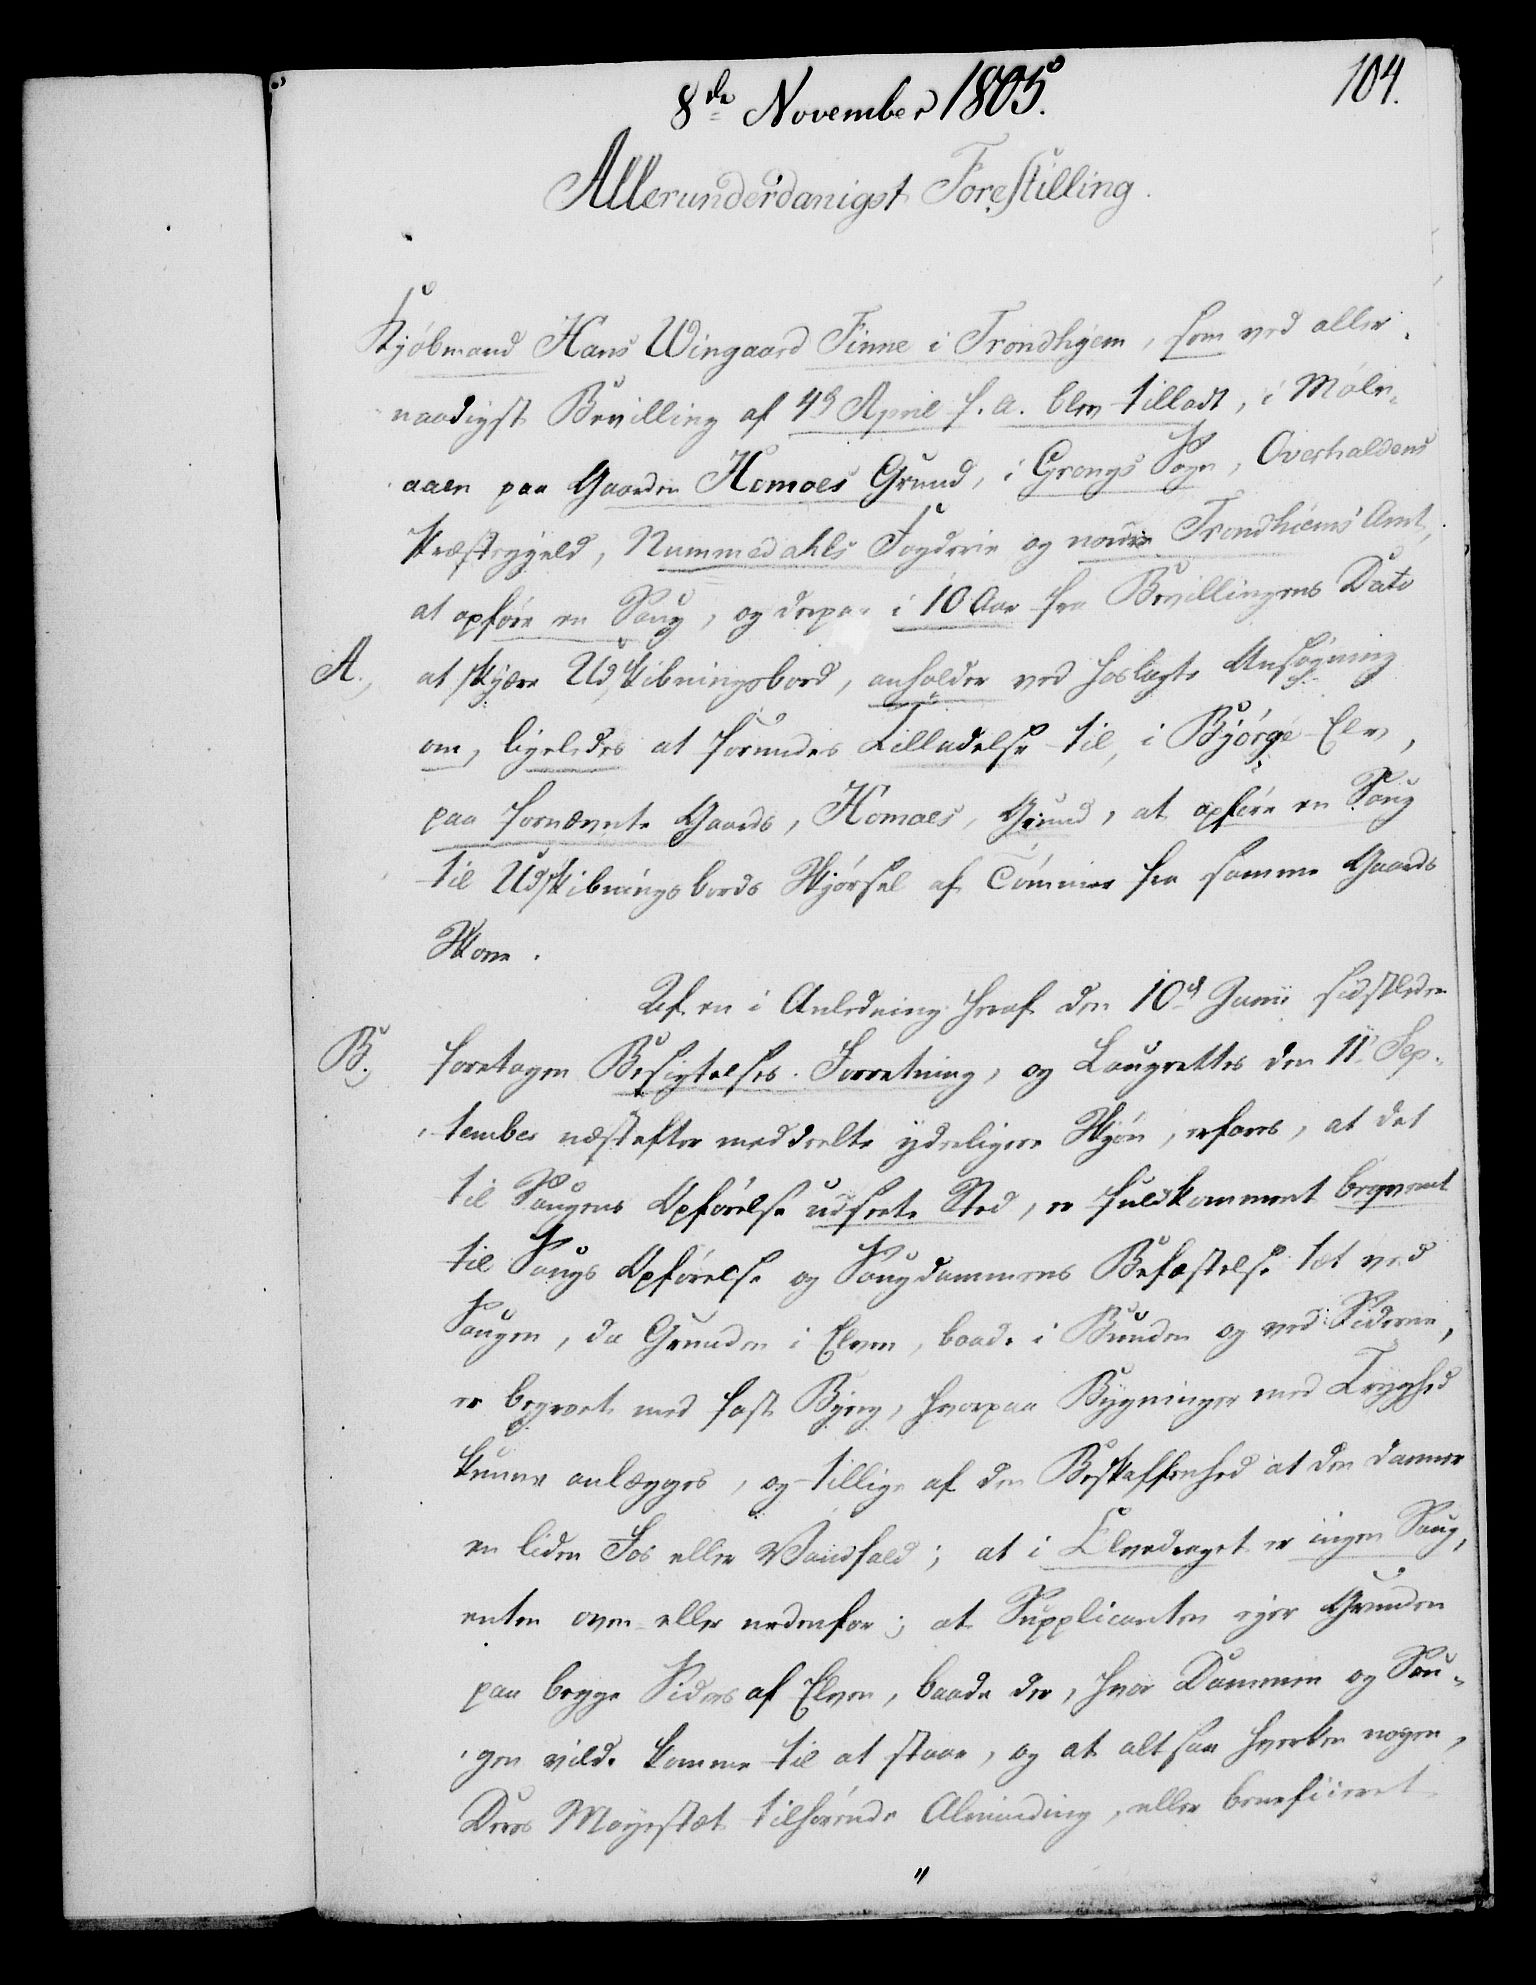 8de November 1805.
104.
Allerunderdanigst Forestilling.
Kjøbmand Hans Wingaard Finne i Trondhjem, som ved aller-
naadigst Bevilling af 4d April f. a. blev tilladt, i Møln-
aaen paa Gaarden Homoes Grund, i Grongs Sogn, Overhaldens
Præstegjeld, Nummedahls Fogderie og nordre Trondhiems Amt,
at opføre en Saug, og derpaa i 10 Aar fra Bevillingens Dato
A., at skjære Udskibningsbord, anholder ved hoslagte Ansøgning
om, ligeledes at forundes Tilladelse til, i Bjørge Elv,
paa fornævnte Gaards, Homoes, Grund, at opføre en Saug
til Udskibningsbords Skjørsel af Tømmer fra samme Gaards
Skove.
Af en i Anledning heraf den 10d Junii sidstleden
B., foretagen Besigtelses-Forretning, og Laugrettes den 11t Sep-
tember næstefter meddeelte yderligere Skjøn, erfares, at det
til Saugens Opførelse udseete Sted, er fuldkomment beqvemt
til Saugs Opførelse og Saugdammens Befæstelse tæt ved
Saugen, da Grunden i Elven, baade i Bunden og ved Siderne,
er begavet med fast Bjerg, hvorpaa Bygninger med Tryghed
kunne anlægges, og tillige af den Beskaffenhed at den danner
en liden Fos eller Vandfald; at i Elvedraget er ingen Saug,
enten oven- eller nedenfor; at Supplicanten ejer Grunden
paa begge Sider af Elven, baade der, hvor Dammen og Sau-
gen vilde komme til at staae, og at altsaa hverken nogen,
Deres Majestæt tilhørende Alminding, eller beneficeret
"